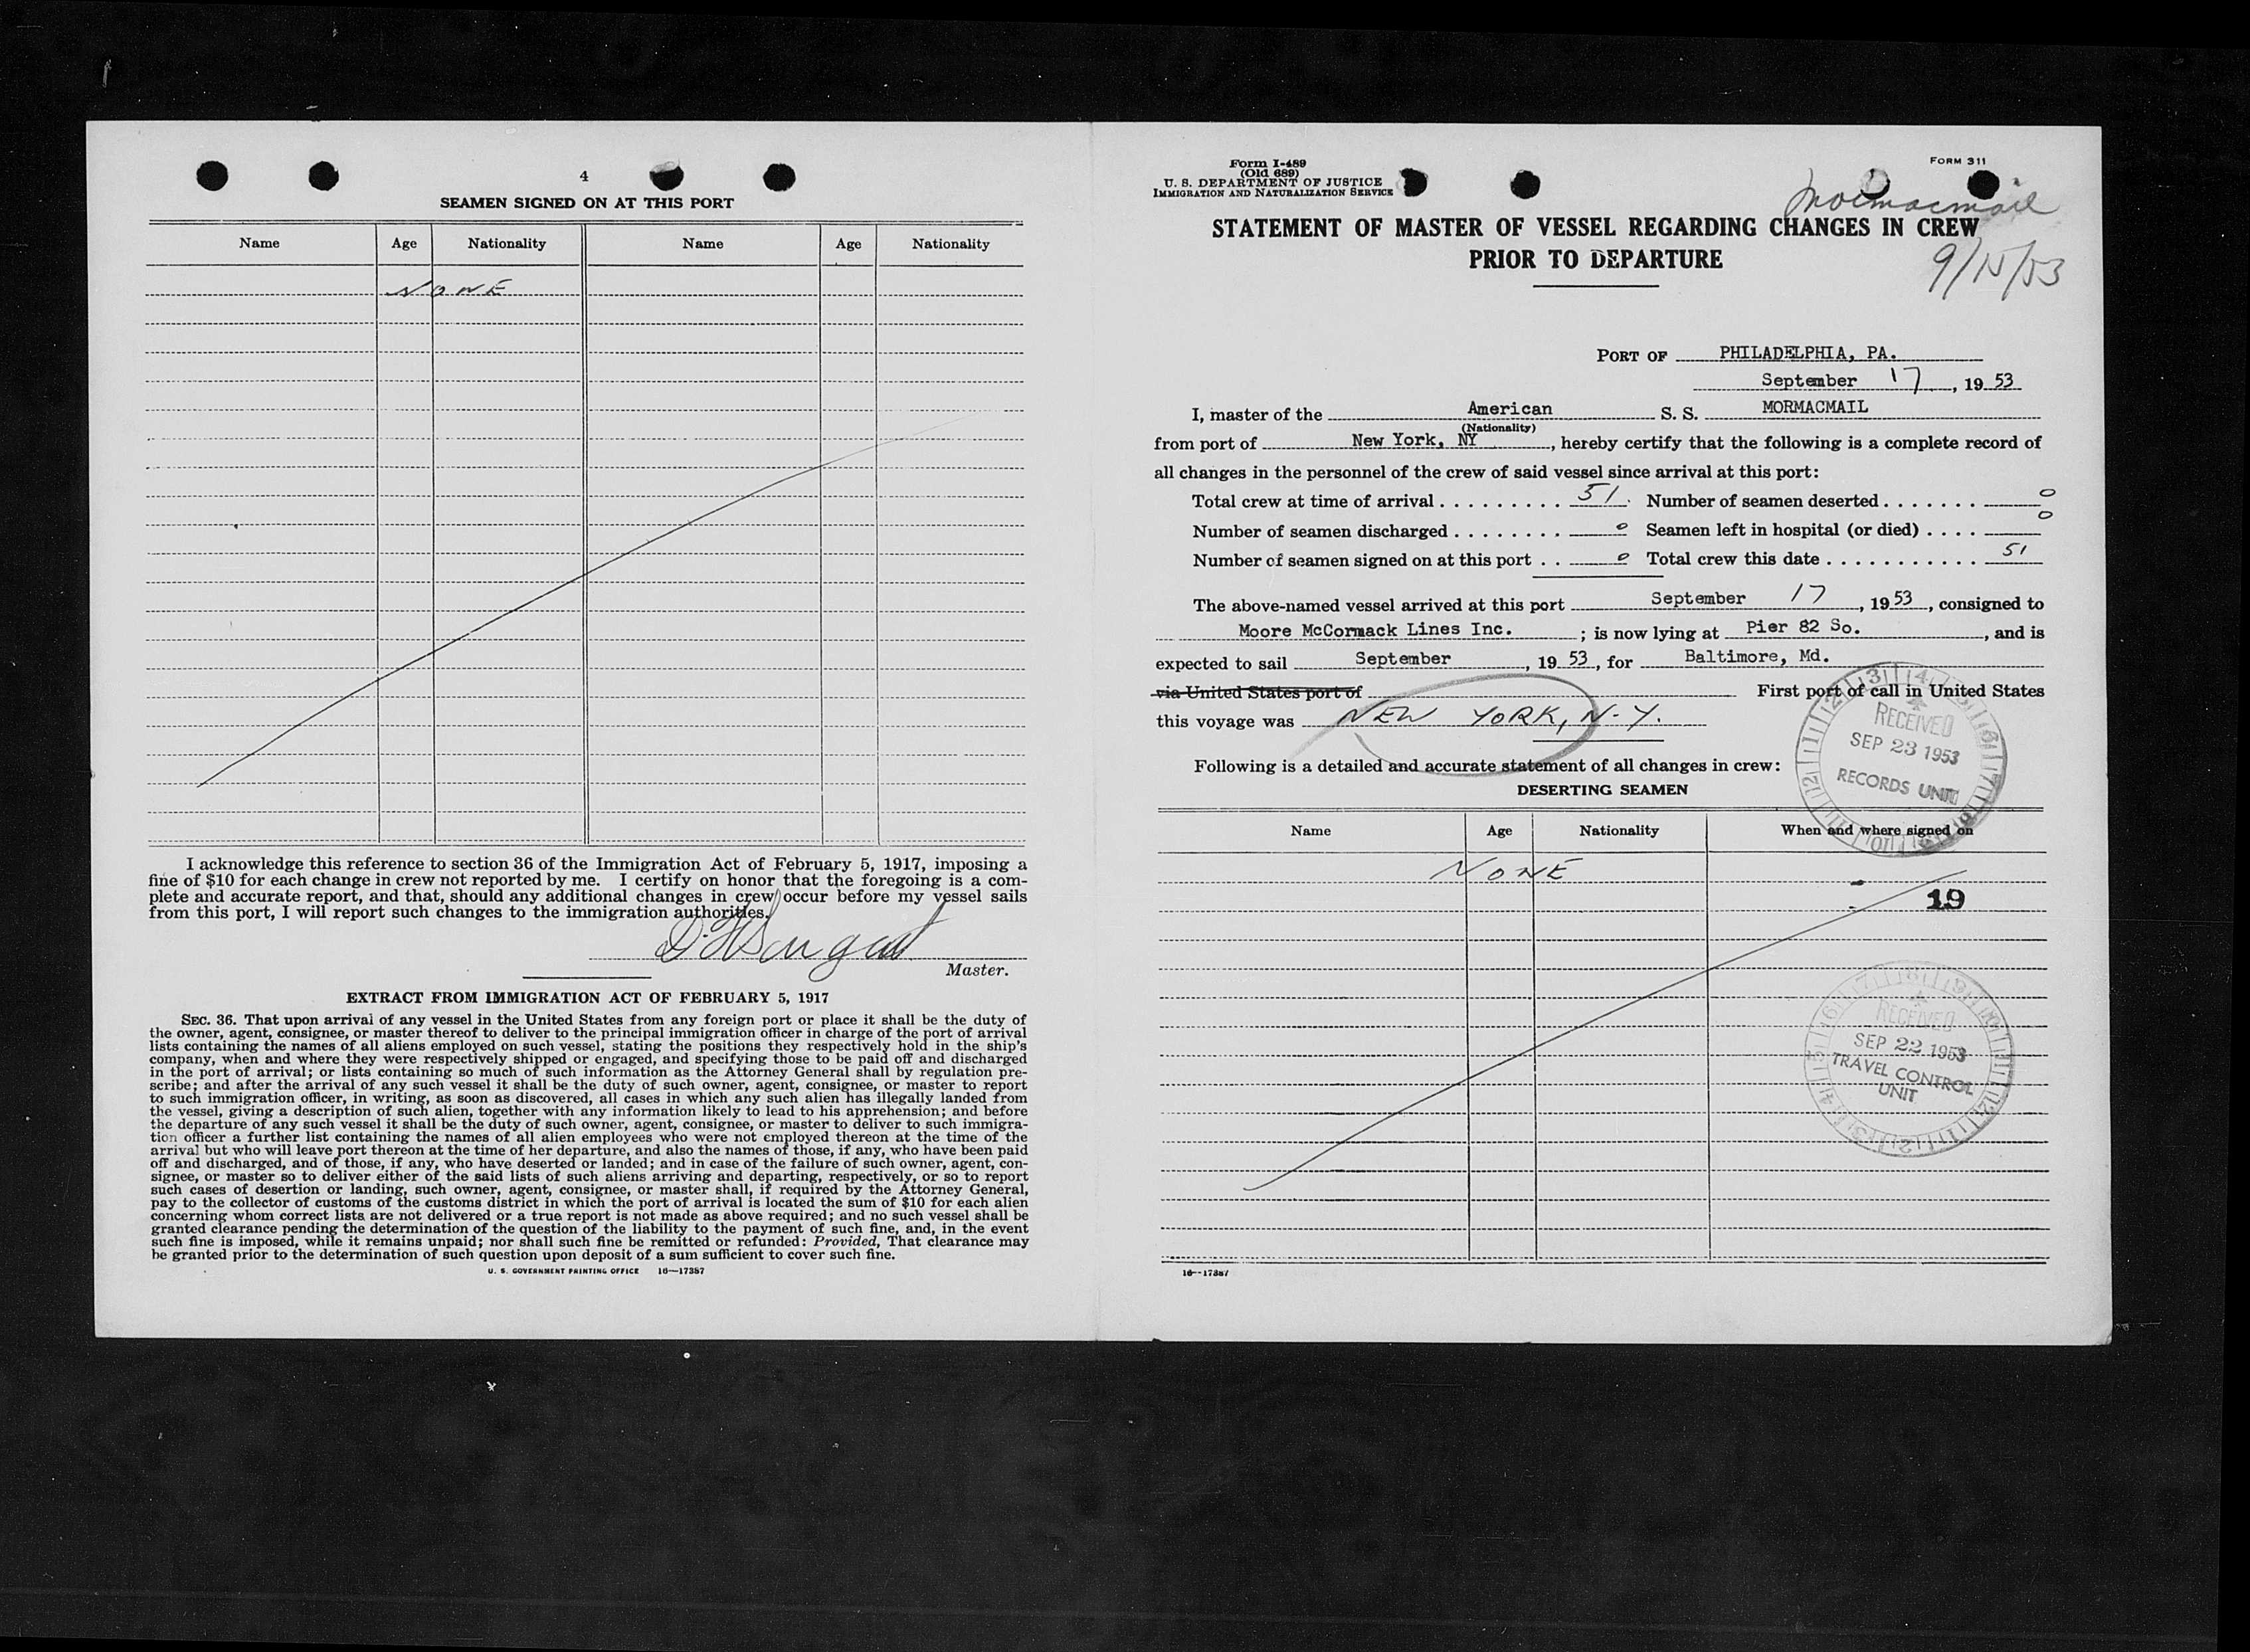 4
SEAMEN SIGNED ON AT THIS PORT
Name Age Nationality Name Age Nationality
NONE
I acknowledge this reference to section 36 of the Immigration Act of February 5, 1917, imposing a
fine of $10 for each change in crew not reported by me. I certify on honor that the foregoing is a com-
plete and accurate report, and that, should any additional changes in crew occur before my vessel sails
from this port, I will report such changes to the immigration authorities.
Master.
EXTRACT FROM IMMIGRATION ACT OF FEBRUARY 5, 1917
SEC. 36. That upon arrival of any vessel in the United States from any foreign port or place it shall be the duty of
the owner, agent, consignee, or master thereof to deliver to the principal immigration officer in charge of the port of arrival
lists containing the names of all aliens employed on such vessel, stating the positions they respectively hold in the ship's
company, when and where they were respectively shipped or engaged, and specifying those to be paid off and discharged
in the port of arrival; or lists containing so much of such information as the Attorney General shall by regulation pre-
scribe; and after the arrival of any such vessel it shall be the duty of such owner, agent, consignee, or master to report
to such immigration officer, in writing, as soon as discovered, all cases in which any such alien has illegally landed from
the vessel, giving a description of such alien, together with any information likely to lead to his apprehension; and before
the departure of any such vessel it shall be the duty of such owner, agent, consignee, or master to deliver to such immigra-
tion officer a further list containing the names of all alien employees who were not employed thereon at the time of the
arrival but who will leave port thereon at the time of her departure, and also the names of those, if any, who have been paid
off and discharged, and of those, if any, who have deserted or landed; and in case of the failure of such owner, agent, con-
signee, or master so to deliver either of the said lists of such aliens arriving and departing, respectively, or so to report
such cases of desertion or landing, such owner, agent, consignee, or master shall, if required by the Attorney General,
pay to the collector of customs of the customs district in which the port of arrival is located the sum of $10 for each alien
concerning whom correct lists are not delivered or a true report is not made as above required; and no such vessel shall be
granted clearance pending the determination of the question of the liability to the payment of such fine, and, in the event
such fine is imposed, while it remains unpaid; nor shall such fine be remitted or refunded: Provided, That clearance may
be granted prior to the determination of such question upon deposit of a sum sufficient to cover such fine.
U. S. GOVERNMENT PRINTING OFFICE 16—17387
Form I-489
(Old 689)
U. S. DEPARTMENT OF JUSTICE
IMMIGRATION AND NATURALIZATION SERVICE
FORM 311
Mormacmail
STATEMENT OF MASTER OF VESSEL REGARDING CHANGES IN CREW
PRIOR TO DEPARTURE
9/15/53
PORT OF PHILADELPHIA, PA.
September 17, 19 53
I, master of the American S. S. MORMACMAIL
(Nationality)
from port of New York, NY, hereby certify that the following is a complete record of
all changes in the personnel of the crew of said vessel since arrival at this port:
Total crew at time of arrival . . . . . . . . . 51. Number of seamen deserted . . . . . . . 0
Number of seamen discharged . . . . . . . . 0 Seamen left in hospital (or died) . . . . 0
Number of seamen signed on at this port . . 0 Total crew this date . . . . . . . . . . . 51
The above-named vessel arrived at this port September 17, 19 53, consigned to
Moore McCormack Lines Inc. ; is now lying at Pier 82 So. , and is
expected to sail September , 19 53, for Baltimore, Md.
via United States port of First port of call in United States
this voyage was NEW YORK, N.Y.
RECEIVED
SEP 23 1953
RECORDS UNIT
Following is a detailed and accurate statement of all changes in crew:
DESERTING SEAMEN
Name Age Nationality When and where signed on
NONE
19
RECEIVED
SEP 22 1953
TRAVEL CONTROL
UNIT
16—17387